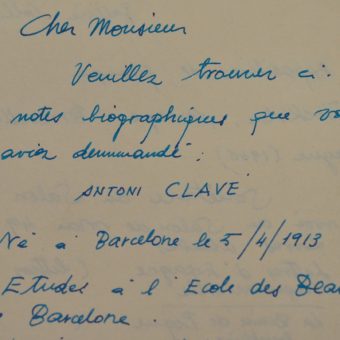 Cher Monsieur
Veuillez trouver ci.
notes biographiques que vo
aviez demmandé :
ANTONI CLAVÉ
Né à Barcelone le 5/4/1913
Etudes à l'Ecole des Beau
Barcelone.